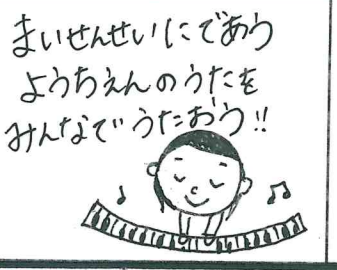 まいせんせいにであう
ようちえんのうたを
みんなでうたおう!!